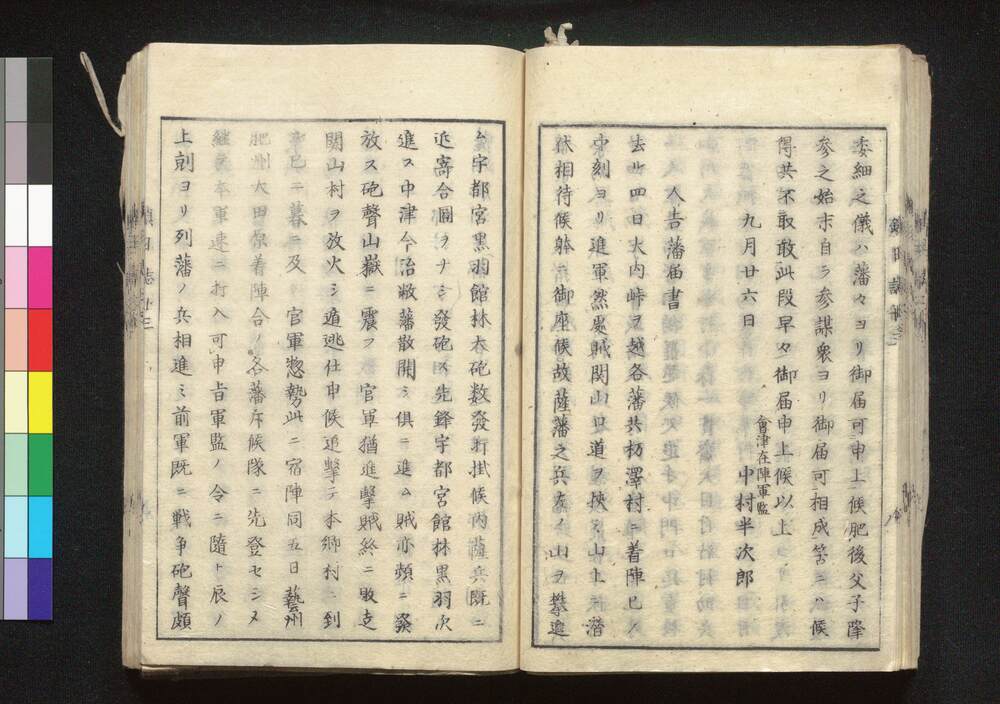 委細之儀ハ藩々ヨリ御届可申上候肥後父子降
参之始末自ラ参謀衆ヨリ御届可相成筈ニハ候
得共不取敢此段早々御届申上候以上
九月廿六日
會津在陣軍監
中村半次郎
人吉藩届書
去ル四日大内峠ヲ越各藩共栃澤村ニ着陣巳ノ
中刻ヨリ進軍然處賊関山口道ヲ挾ミ山上潜
伏相待候躰ニ御座候故薩藩之兵左ノ山ヲ攀進
ム宇都宮黒羽館林大砲数發打拭候内薩兵既ニ
近寄合圖ヲナシ發砲ス先鋒宇都宮館林黒羽次
進ス中津今治敝藩散開シ俱ニ進ム賊亦頻ニ發
放ス砲聲山嶽ニ震フ官軍猶進擊賊終ニ敗走
関山村ヲ放火シ遁逃仕申候追擊シテ本郷村ニ到
辛巳ニ暮ニ及官軍惣勢此ニ宿陣同五日藝州
肥州大田原着陣合ノ各藩斥候隊ニ先登セシメ
継テ本軍速ニ打入可申旨軍監ノ令ニ隨ト辰ノ
上剋ヨリ列藩ノ兵相進ミ前軍既ニ戦争砲聲頗